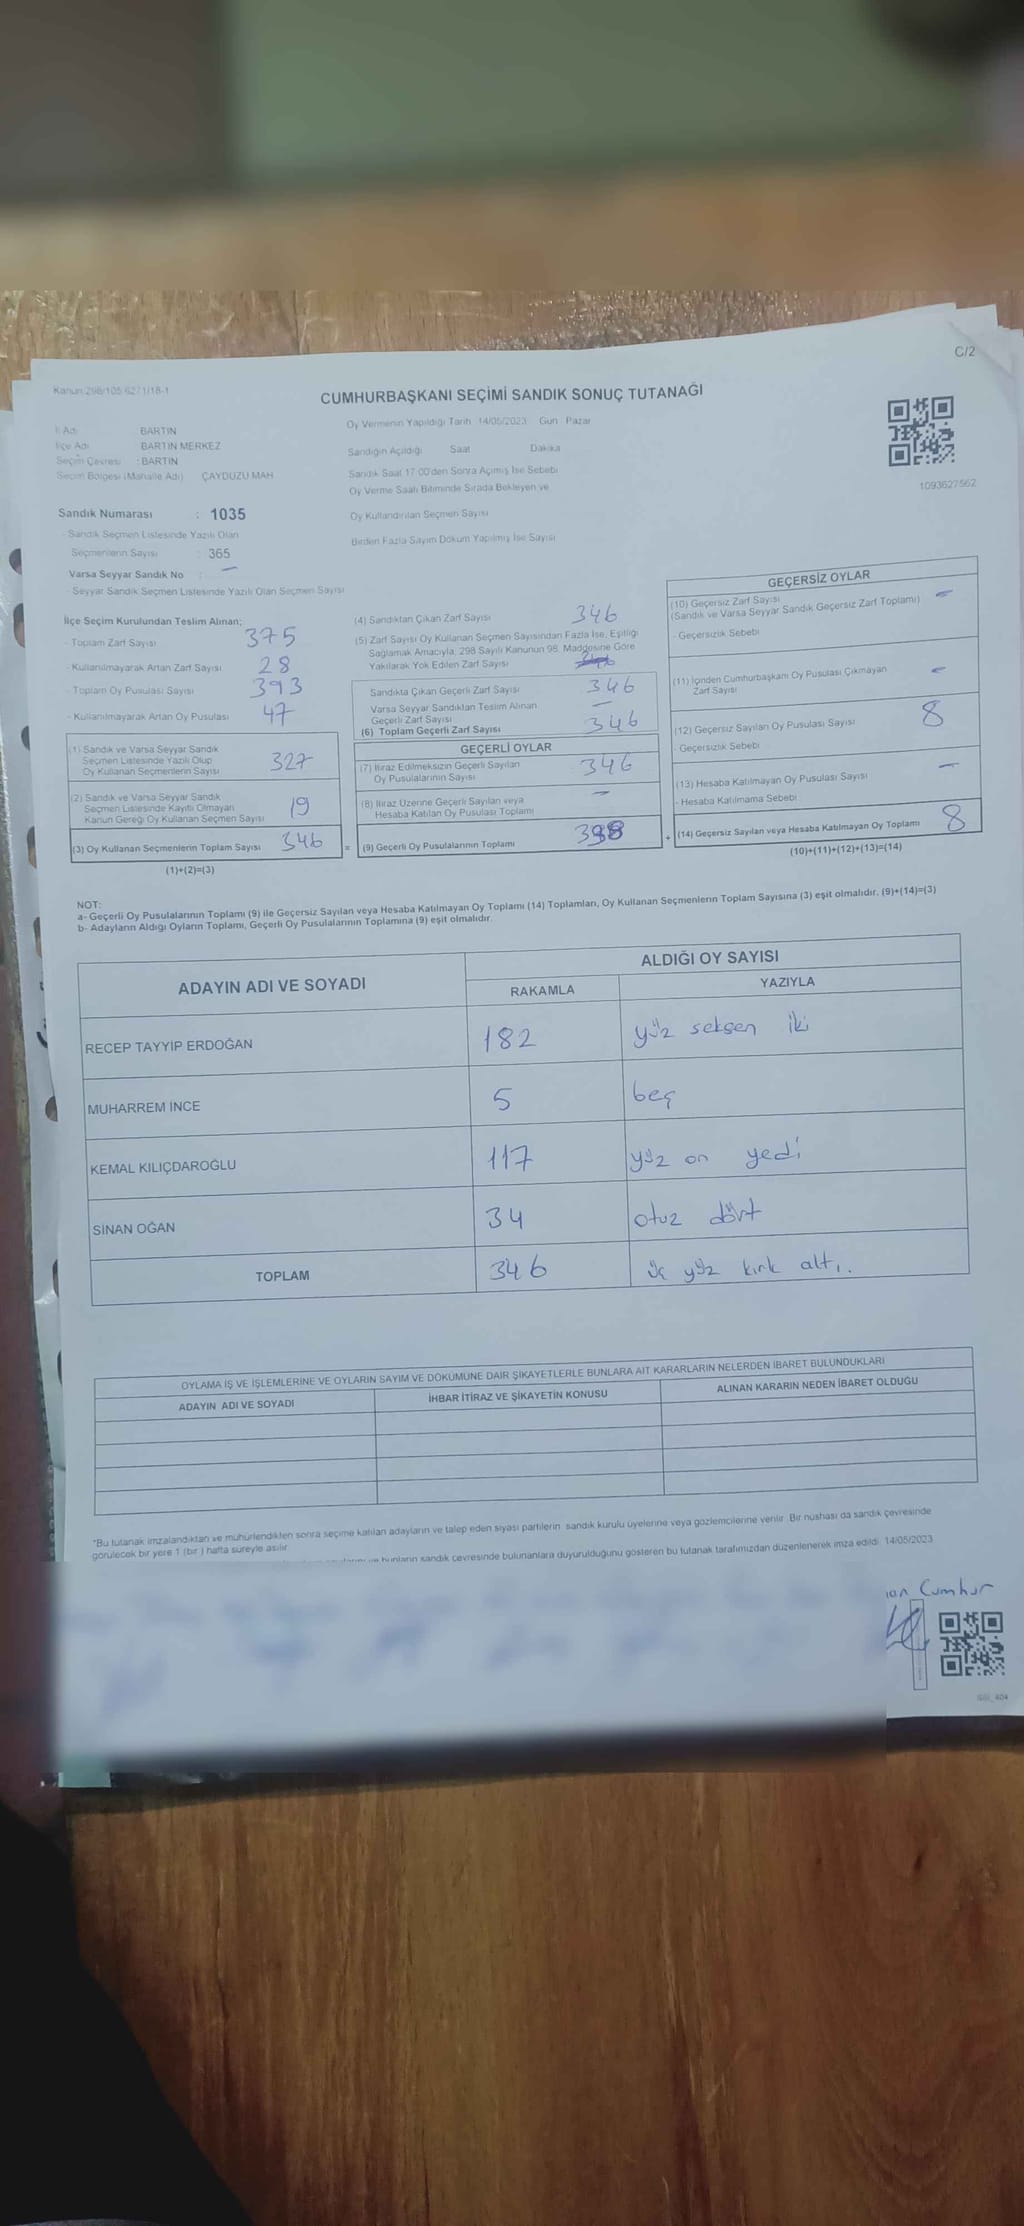 C/2
Kanun:298/105 6271/18-1
CUMHURBAŞKANI SEÇİMİ SANDIK SONUÇ TUTANAĞI
Oy Vermenin Yapıldığı Tarih 14/05/2023 Gün Pazar
İl Adı BARTIN
İlçe Adı BARTIN MERKEZ
Seçim Çevresi : BARTIN
Seçim Bölgesi (Mahalle Adı) ÇAYDÜZÜ MAH
Sandığın Açıldığı Saat Dakika
Sandık Saat 17:00'den Sonra Açımış İse Sebebi
Oy Verme Saati Bitiminde Sırada Bekleyen ve
Oy Kullandırılan Seçmen Sayısı
Birden Fazla Sayım Döküm Yapılmış İse Sayısı
1093627562
Sandık Numarası : 1035
- Sandık Seçmen Listesinde Yazılı Olan
Seçmenlerin Sayısı : 365
Varsa Seyyar Sandık No : -
- Seyyar Sandık Seçmen Listesinde Yazılı Olan Seçmen Sayısı
İlçe Seçim Kurulundan Teslim Alınan;
- Toplam Zarf Sayısı 375
- Kullanılmayarak Artan Zarf Sayısı 28
- Toplam Oy Pusulası Sayısı 393
- Kullanılmayarak Artan Oy Pusulası 47
(1) Sandık ve Varsa Seyyar Sandık
Seçmen Listesinde Yazılı Olup
Oy Kullanan Seçmenlerin Sayısı 327
(2) Sandık ve Varsa Seyyar Sandık
Seçmen Listesinde Kayıtlı Olmayan
Kanun Gereği Oy Kullanan Seçmen Sayısı 19
(3) Oy Kullanan Seçmenlerin Toplam Sayısı 346
(1)+(2)=(3)
(4) Sandıktan Çıkan Zarf Sayısı 346
(5) Zarf Sayısı Oy Kullanan Seçmen Sayısından Fazla İse, Eşitliği
Sağlamak Amacıyla, 298 Sayılı Kanunun 98. Maddesine Göre
Yakılarak Yok Edilen Zarf Sayısı
Sandıkta Çıkan Geçerli Zarf Sayısı 346
Varsa Seyyar Sandıktan Teslim Alınan
Geçerli Zarf Sayısı -
(6) Toplam Geçerli Zarf Sayısı 346
GEÇERLİ OYLAR
(7) İtiraz Edilmeksizin Geçerli Sayılan
Oy Pusulalarının Sayısı 346
(8) İtiraz Üzerine Geçerli Sayılan veya
Hesaba Katılan Oy Pusulası Toplamı -
= (9) Geçerli Oy Pusulalarının Toplamı 338
GEÇERSİZ OYLAR
(10) Geçersiz Zarf Sayısı -
(Sandık ve Varsa Seyyar Sandık Geçersiz Zarf Toplamı)
- Geçersizlik Sebebi
(11) İçinden Cumhurbaşkanı Oy Pusulası Çıkmayan
Zarf Sayısı -
(12) Geçersiz Sayılan Oy Pusulası Sayısı 8
- Geçersizlik Sebebi
(13) Hesaba Katılmayan Oy Pusulası Sayısı -
- Hesaba Katılmama Sebebi
+ (14) Geçersiz Sayılan veya Hesaba Katılmayan Oy Toplamı 8
(10)+(11)+(12)+(13)=(14)
NOT:
a- Geçerli Oy Pusulalarının Toplamı (9) ile Geçersiz Sayılan veya Hesaba Katılmayan Oy Toplamı (14) Toplamları, Oy Kullanan Seçmenlerin Toplam Sayısına (3) eşit olmalıdır. (9)+(14)=(3)
b- Adayların Aldığı Oyların Toplamı, Geçerli Oy Pusulalarının Toplamına (9) eşit olmalıdır.
ADAYIN ADI VE SOYADI
ALDIĞI OY SAYISI
RAKAMLA YAZIYLA
RECEP TAYYIP ERDOĞAN 182 yüz seksen iki
MUHARREM İNCE 5 beş
KEMAL KILIÇDAROĞLU 117 yüz on yedi
SİNAN OĞAN 34 otuz dört
TOPLAM 346 üç yüz kırk altı.
OYLAMA İŞ VE İŞLEMLERİNE VE OYLARIN SAYIM VE DÖKÜMÜNE DAİR ŞİKAYETLERLE BUNLARA AİT KARARLARIN NELERDEN İBARET BULUNDUKLARI
ADAYIN ADI VE SOYADI İHBAR İTİRAZ VE ŞİKAYETİN KONUSU ALINAN KARARIN NEDEN İBARET OLDUĞU
*Bu tutanak imzalandıktan ve mühürlendikten sonra seçime katılan adayların ve talep eden siyasi partilerin sandık kurulu üyelerine veya gözlemcilerine verilir. Bir nüshası da sandık çevresinde
görülecek bir yere 1 (bir ) hafta süreyle asılır.
bunların sandık çevresinde bulunanlara duyurulduğunu gösteren bu tutanak tarafımızdan düzenlenerek imza edildi. 14/05/2023
Cumhur